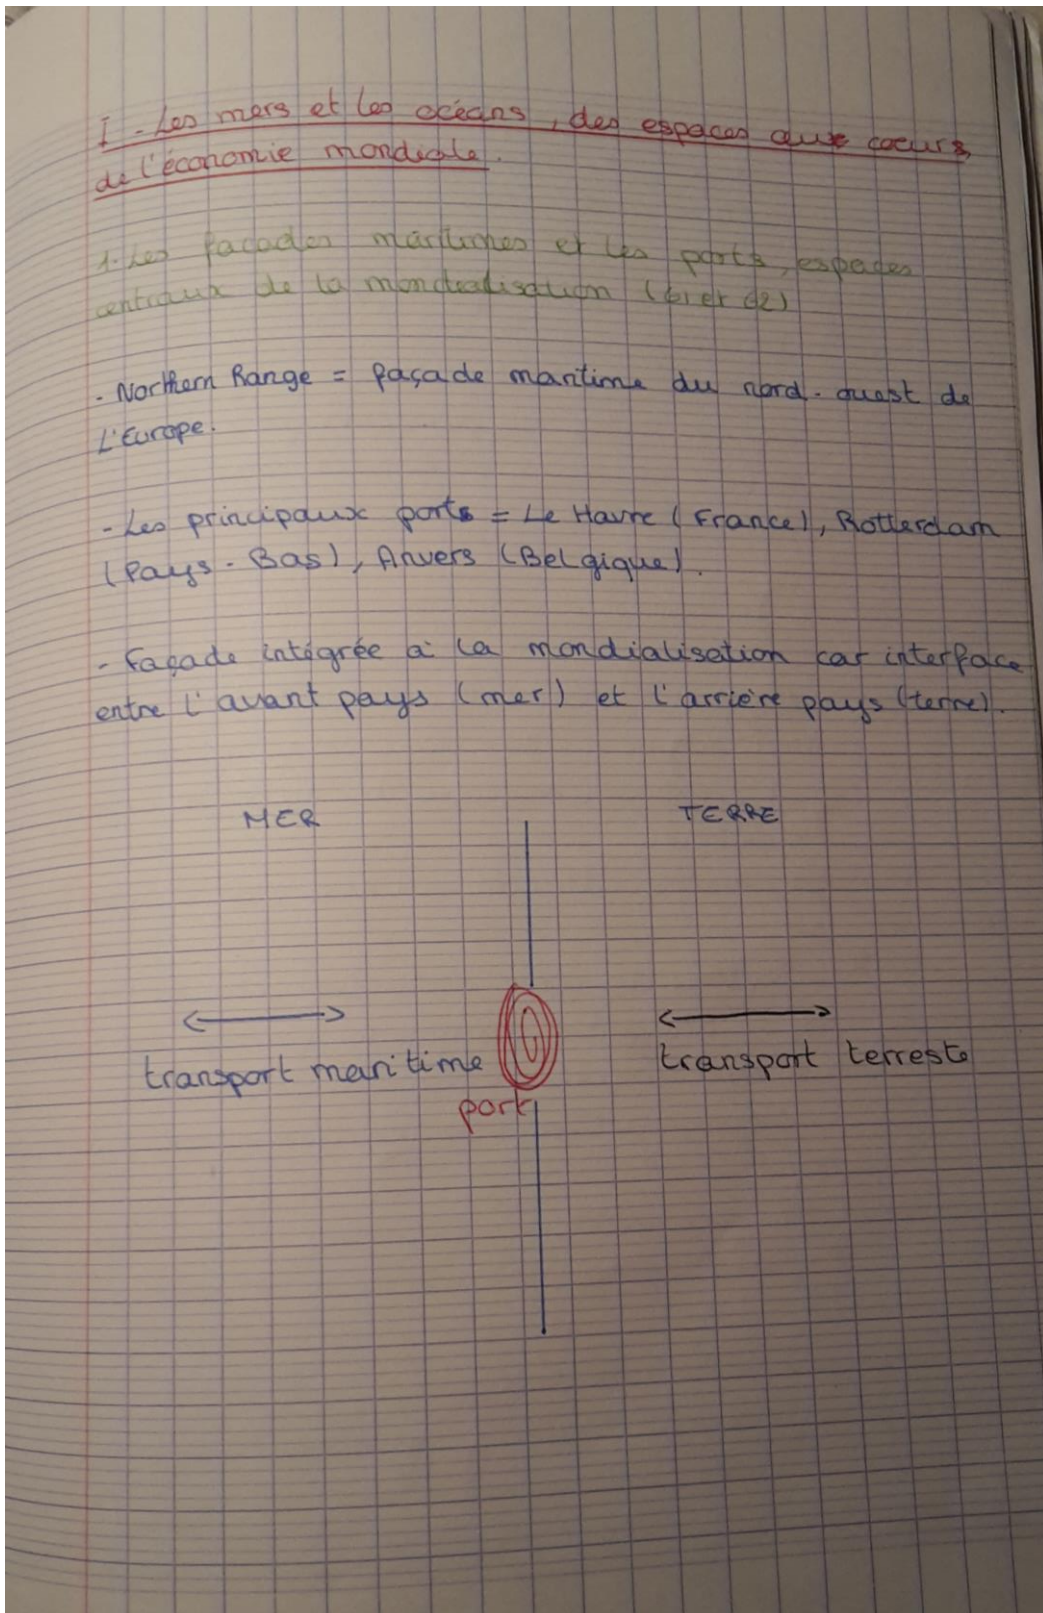 I - Les mers et les océans, des espaces aux coeurs
de l'économie mondiale.
1. Les façades maritimes et les ports, espaces
centraux de la mondialisation (d1 et d2)
- Northern Range = façade maritime du nord-ouest de
L'Europe.
- Les principaux ports = Le Havre (France), Rotterdam
(Pays-Bas), Anvers (Belgique).
- Façade intégrée à la mondialisation car interface
entre l'avant pays (mer) et l'arrière pays (terre).
MER TERRE
transport maritime transport terreste
port